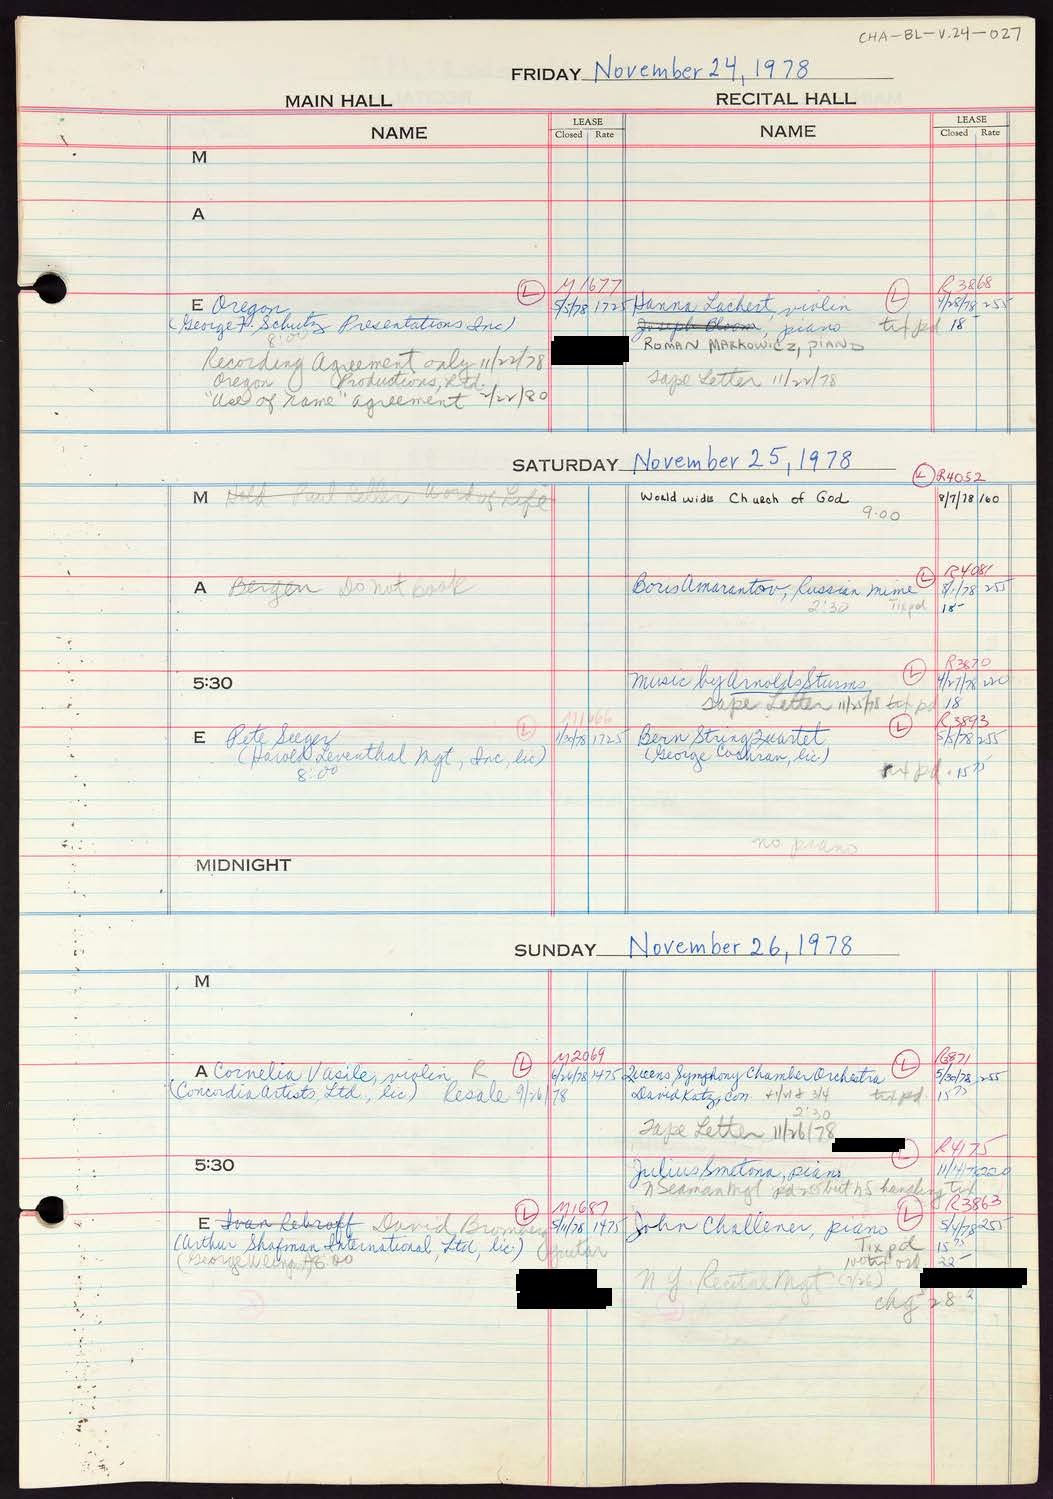 CHA-BL-V.24-027
FRIDAY November 24, 1978
MAIN HALL RECITAL HALL
NAME LEASE Closed Rate NAME LEASE Closed Rate
M
A
L M1677 L R3868
E Oregon 5/5/78 1725 Hanna Lachert, violin 4/28/78 255
(George F. Schutz Presentations Inc) Joseph Bloom, piano tix pd 18-
8:00 ROMAN MARKOWICZ, PIANO
Recording Agreement only 11/22/78
Oregon Productions, Ltd. Tape Letter 11/22/78
"Use of Name" agreement 2/22/80
SATURDAY November 25, 1978
L R4052
M Hold Paul Keller Word of Life World wide Church of God 8/7/78 160
9:00
L R4081
A Bergen Do not book Boris Amarantov, Russian mime 8/1/78 255
2:30 Tix pd 18-
L R3870
5:30 Music by Arnolds Sturms 4/27/78 220
Tape Letter 11/25/78 tix pd 18
L M1066 L R3893
E Pete Seeger 1/30/78 1725 Bern String Quartet 5/5/78 255
(Harold Leventhal Mgt, Inc, lic) (George Cochran, lic.)
8:00 tix pd. 15 75
no piano
MIDNIGHT
SUNDAY November 26, 1978
M
L M2069 L R3871
A Cornelia Vasile, violin R 6/26/78 1475 Queens Symphony Chamber Orchestra 5/30/78 255
(Concordia Artists Ltd., lic) Resale 9/26/78 David Katz, con. tix pd. 15 75
2:30
Tape Letter 11/26/78
L R4175
5:30 Julius Smetona, piano 220
N Seaman Mgt handling tix
L M1687 L R3863
E Ivan Rebroff David Bromberg 5/11/78 1475 John Challener, piano 5/4/78 255
(Arthur Shafman International, Ltd, lic.) guitar Tix pd 15 75
8:00 22-
N Y Recital Mgt (7/26)
chg 28